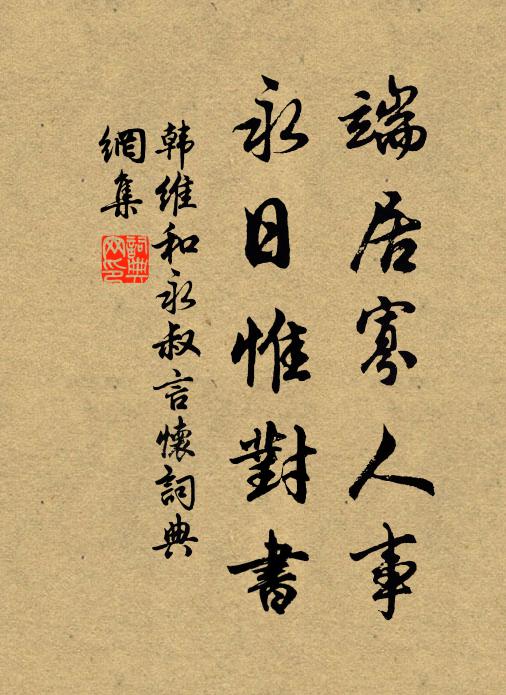 端居寡人事
永日惟對書
韩维和永叔言懷詞典
網集
詞典
网印